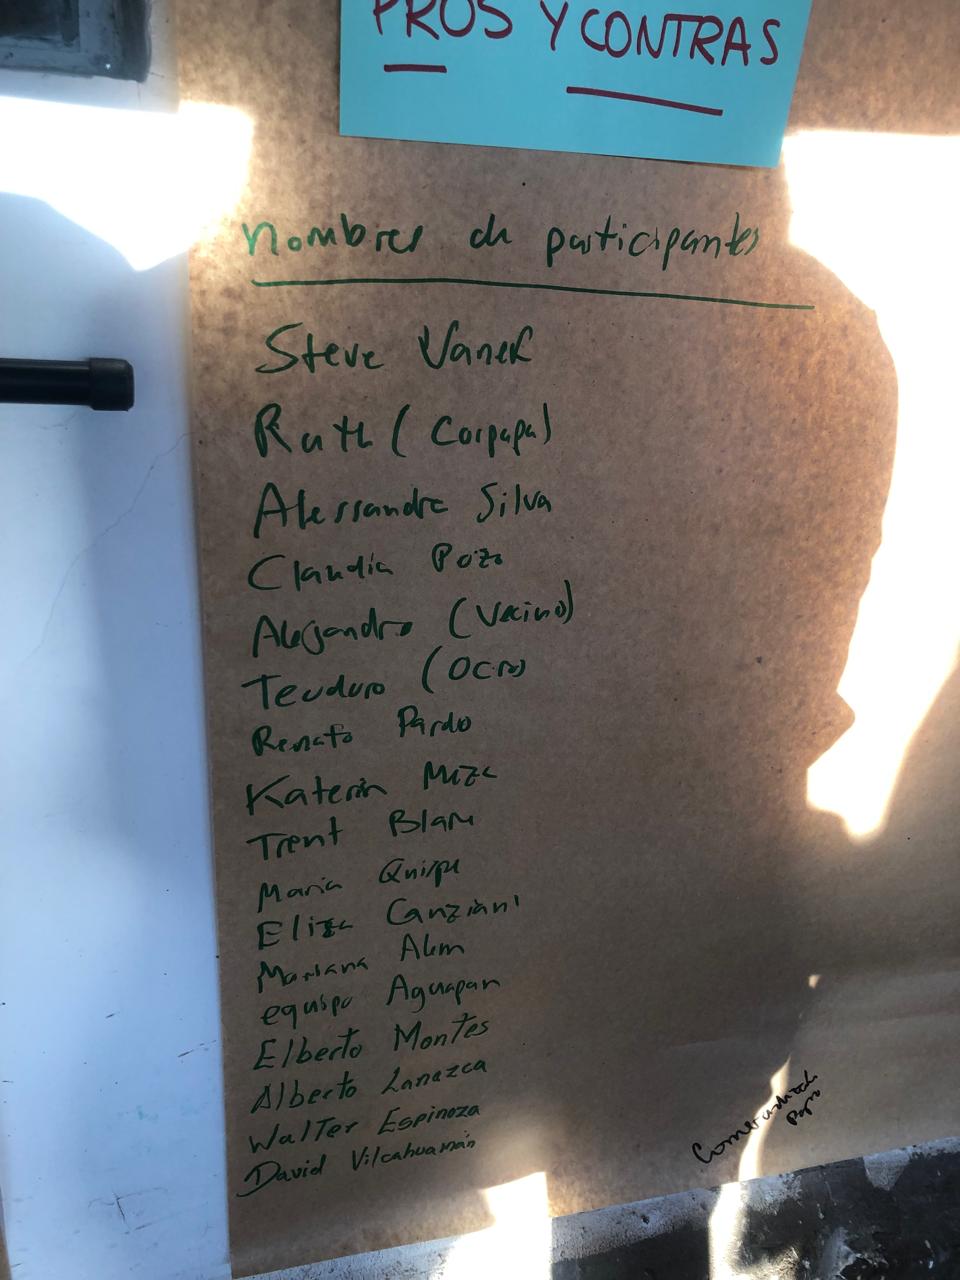 PROS Y CONTRAS
nombres de participantes
Steve Vanek
Ruth (Corpapa)
Alessandra Silva
Claudia Pozo
Alejandro (Vecino)
Teodoro (Ocros)
Renato Pardo
Katerin Meza
Trent Blare
Maria Quispe
Eliza Canziani
Mariana Alem
equipo Aguapan
Elberto Montes
Alberto Lanazca
Walter Espinoza
David Vilcahuamán